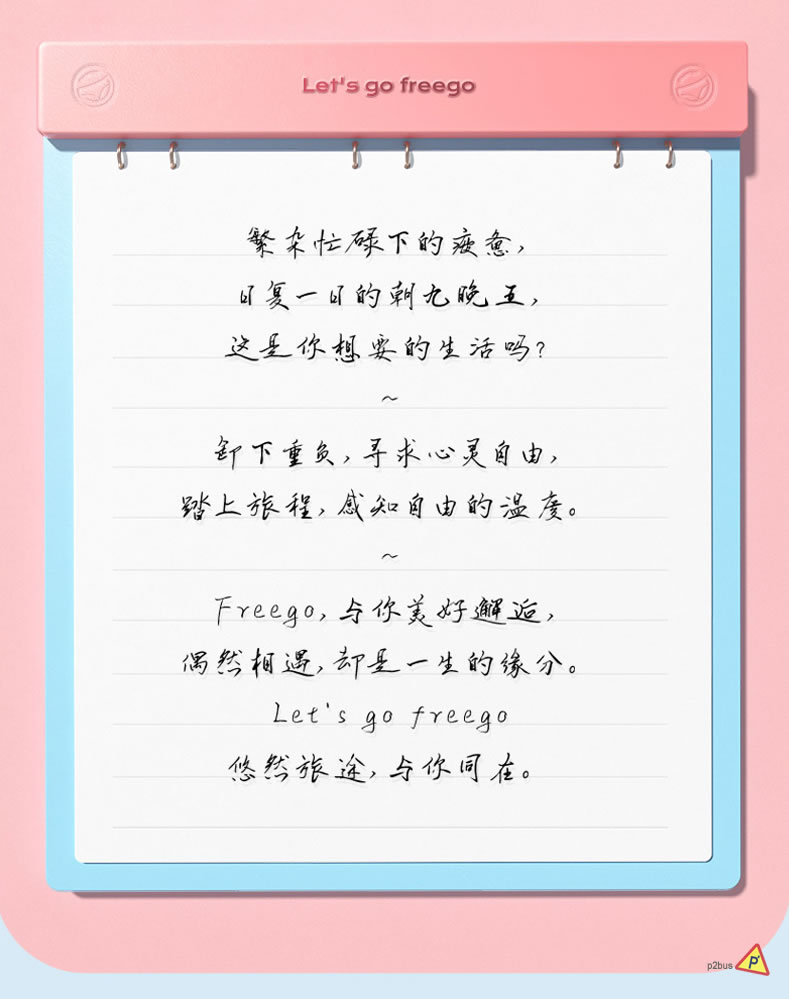 Let's go freego
繁杂忙碌下的疲惫,
日复一日的朝九晚五,
这是你想要的生活吗?
~
卸下重负,寻求心灵自由,
踏上旅程,感知自由的温度。
~
Freego,与你美好邂逅,
偶然相遇,却是一生的缘分。
Let's go freego
悠然旅途,与你同在。
p2bus
P